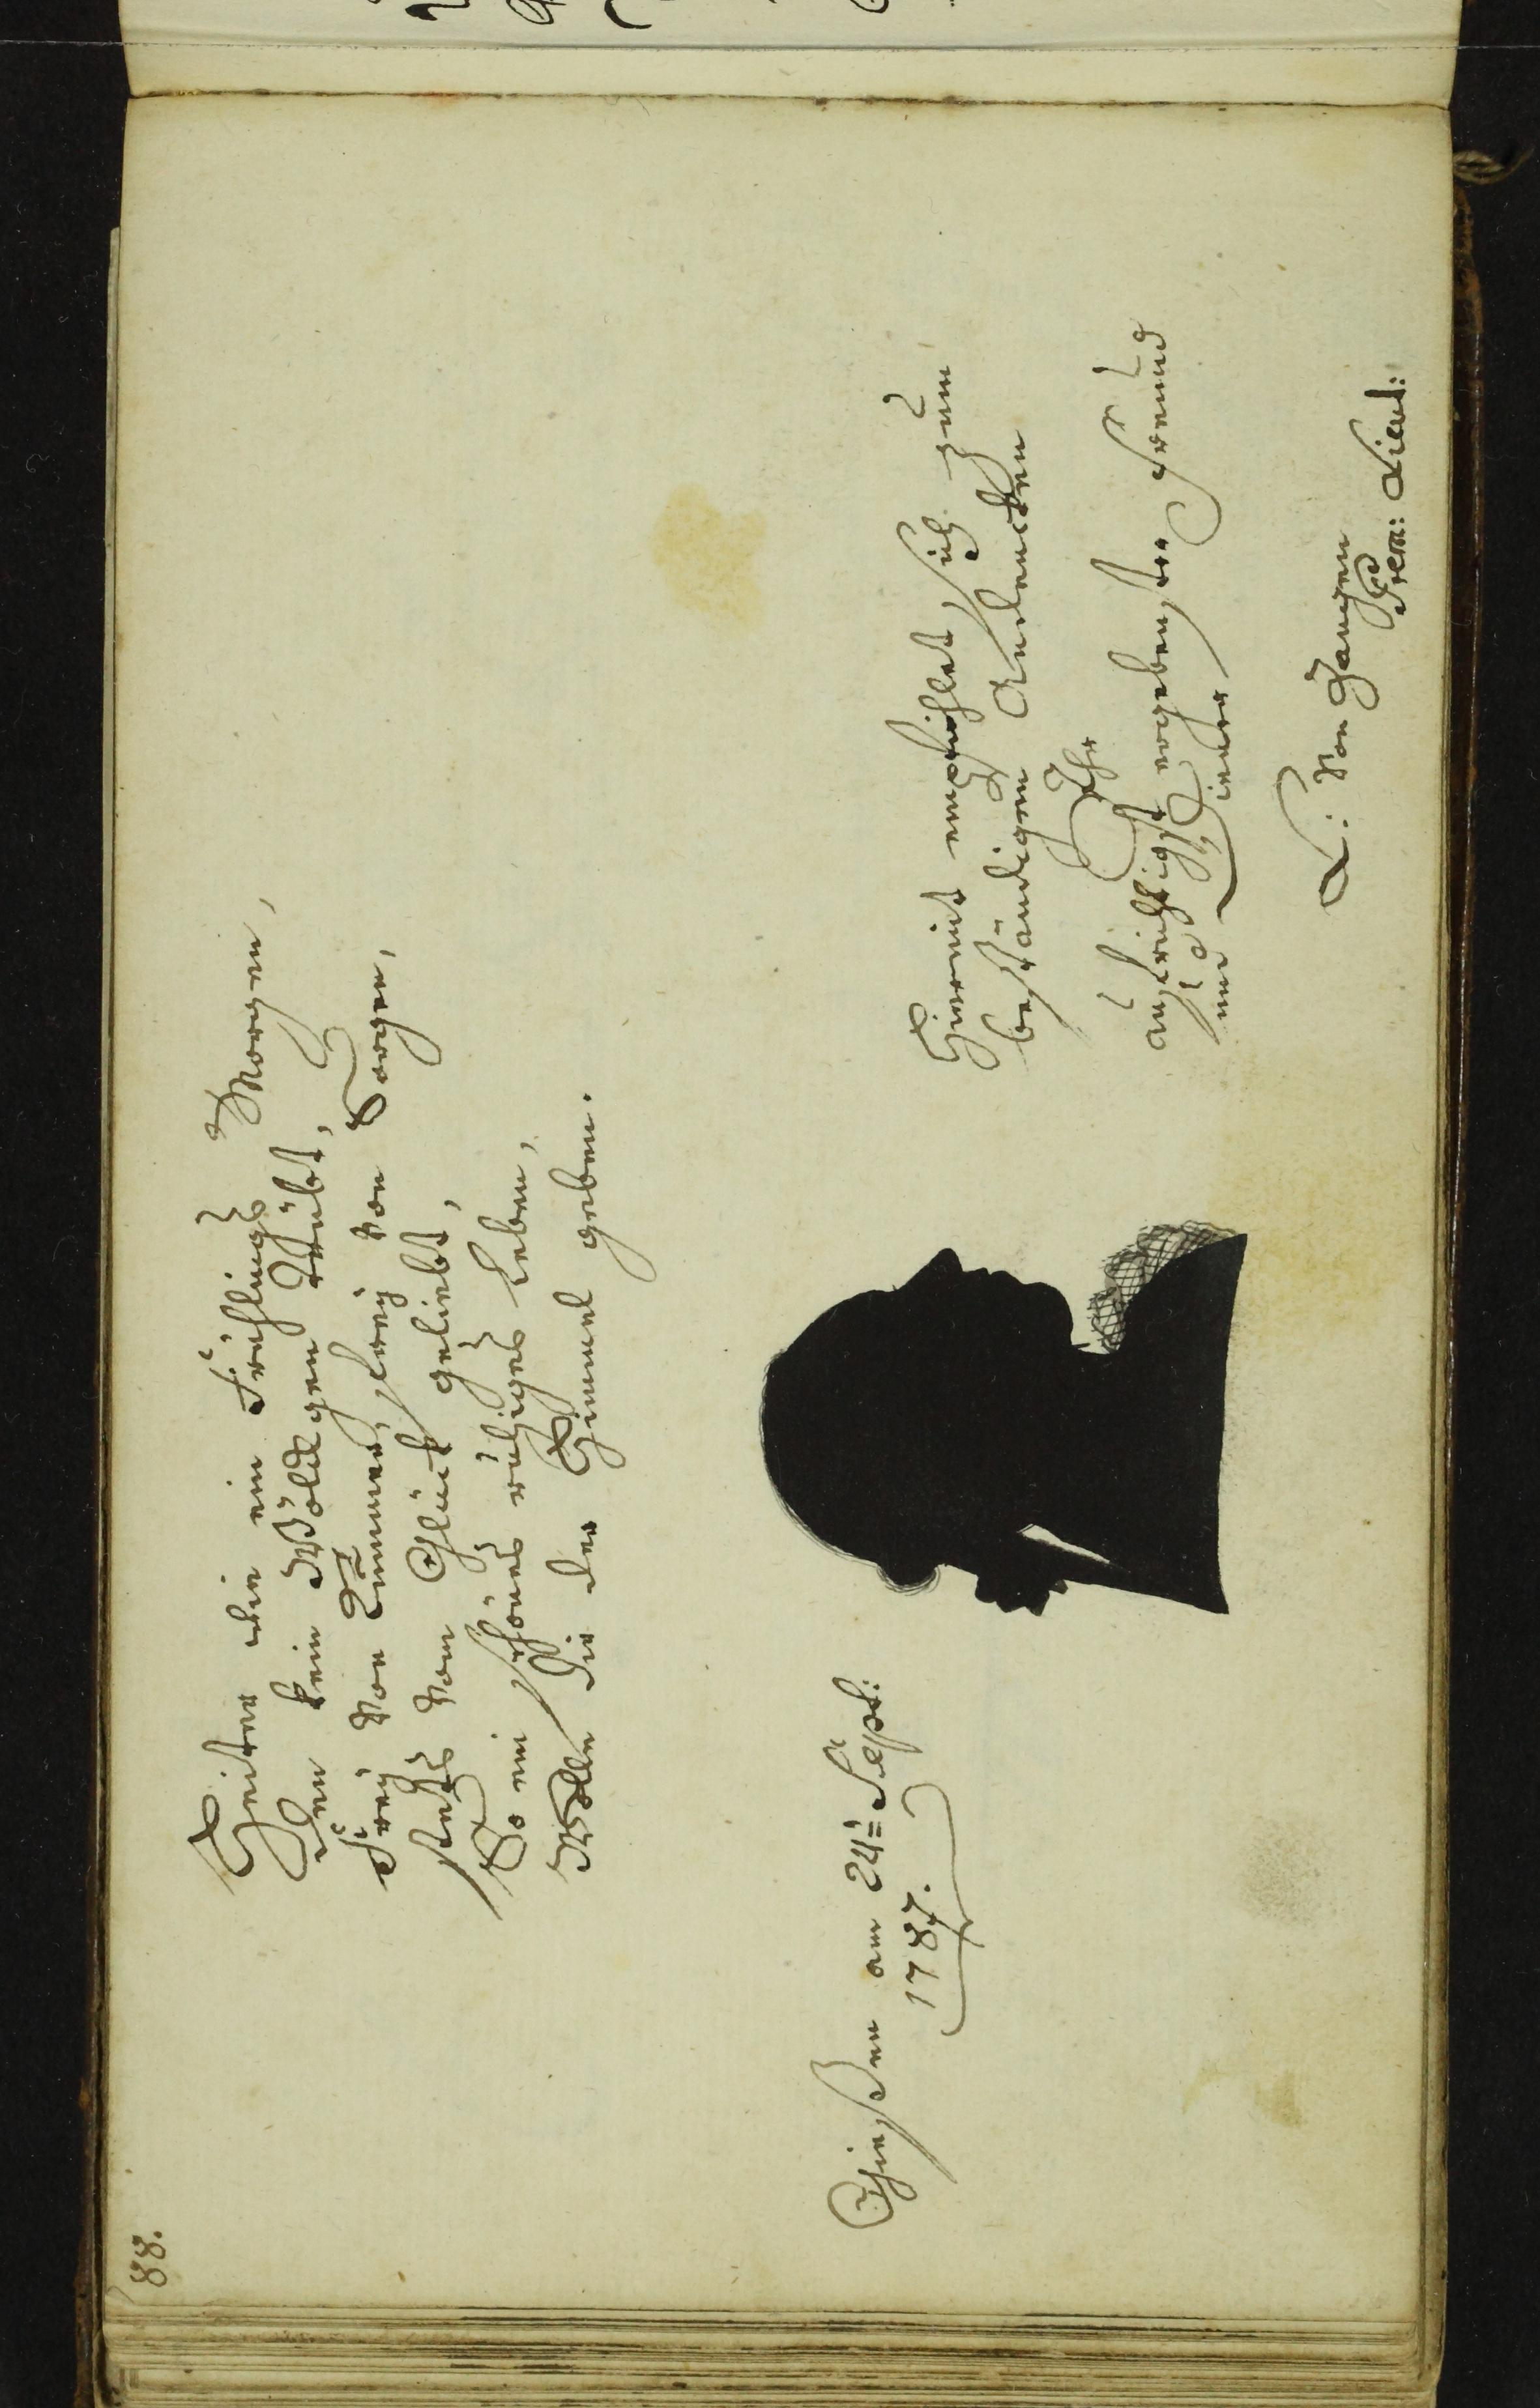 88.
Heiter wie ein Frühlings Morgen,
Den kein Wölckgen Trübt,
Frëy von Kummer, frëy von Sorgen,
stets vom Glück geliebt,
So ein schönes ruhiges Leben,
Wolle dir der Himmel geben.
Giessen am 24= Sept:
1787.
Hiermit empfiehlet sich zum
beständigen Andencken
Ihr
aufrichtigst ergebenster Freund
und Diener
L: von Zangen
Prem: Lieut: